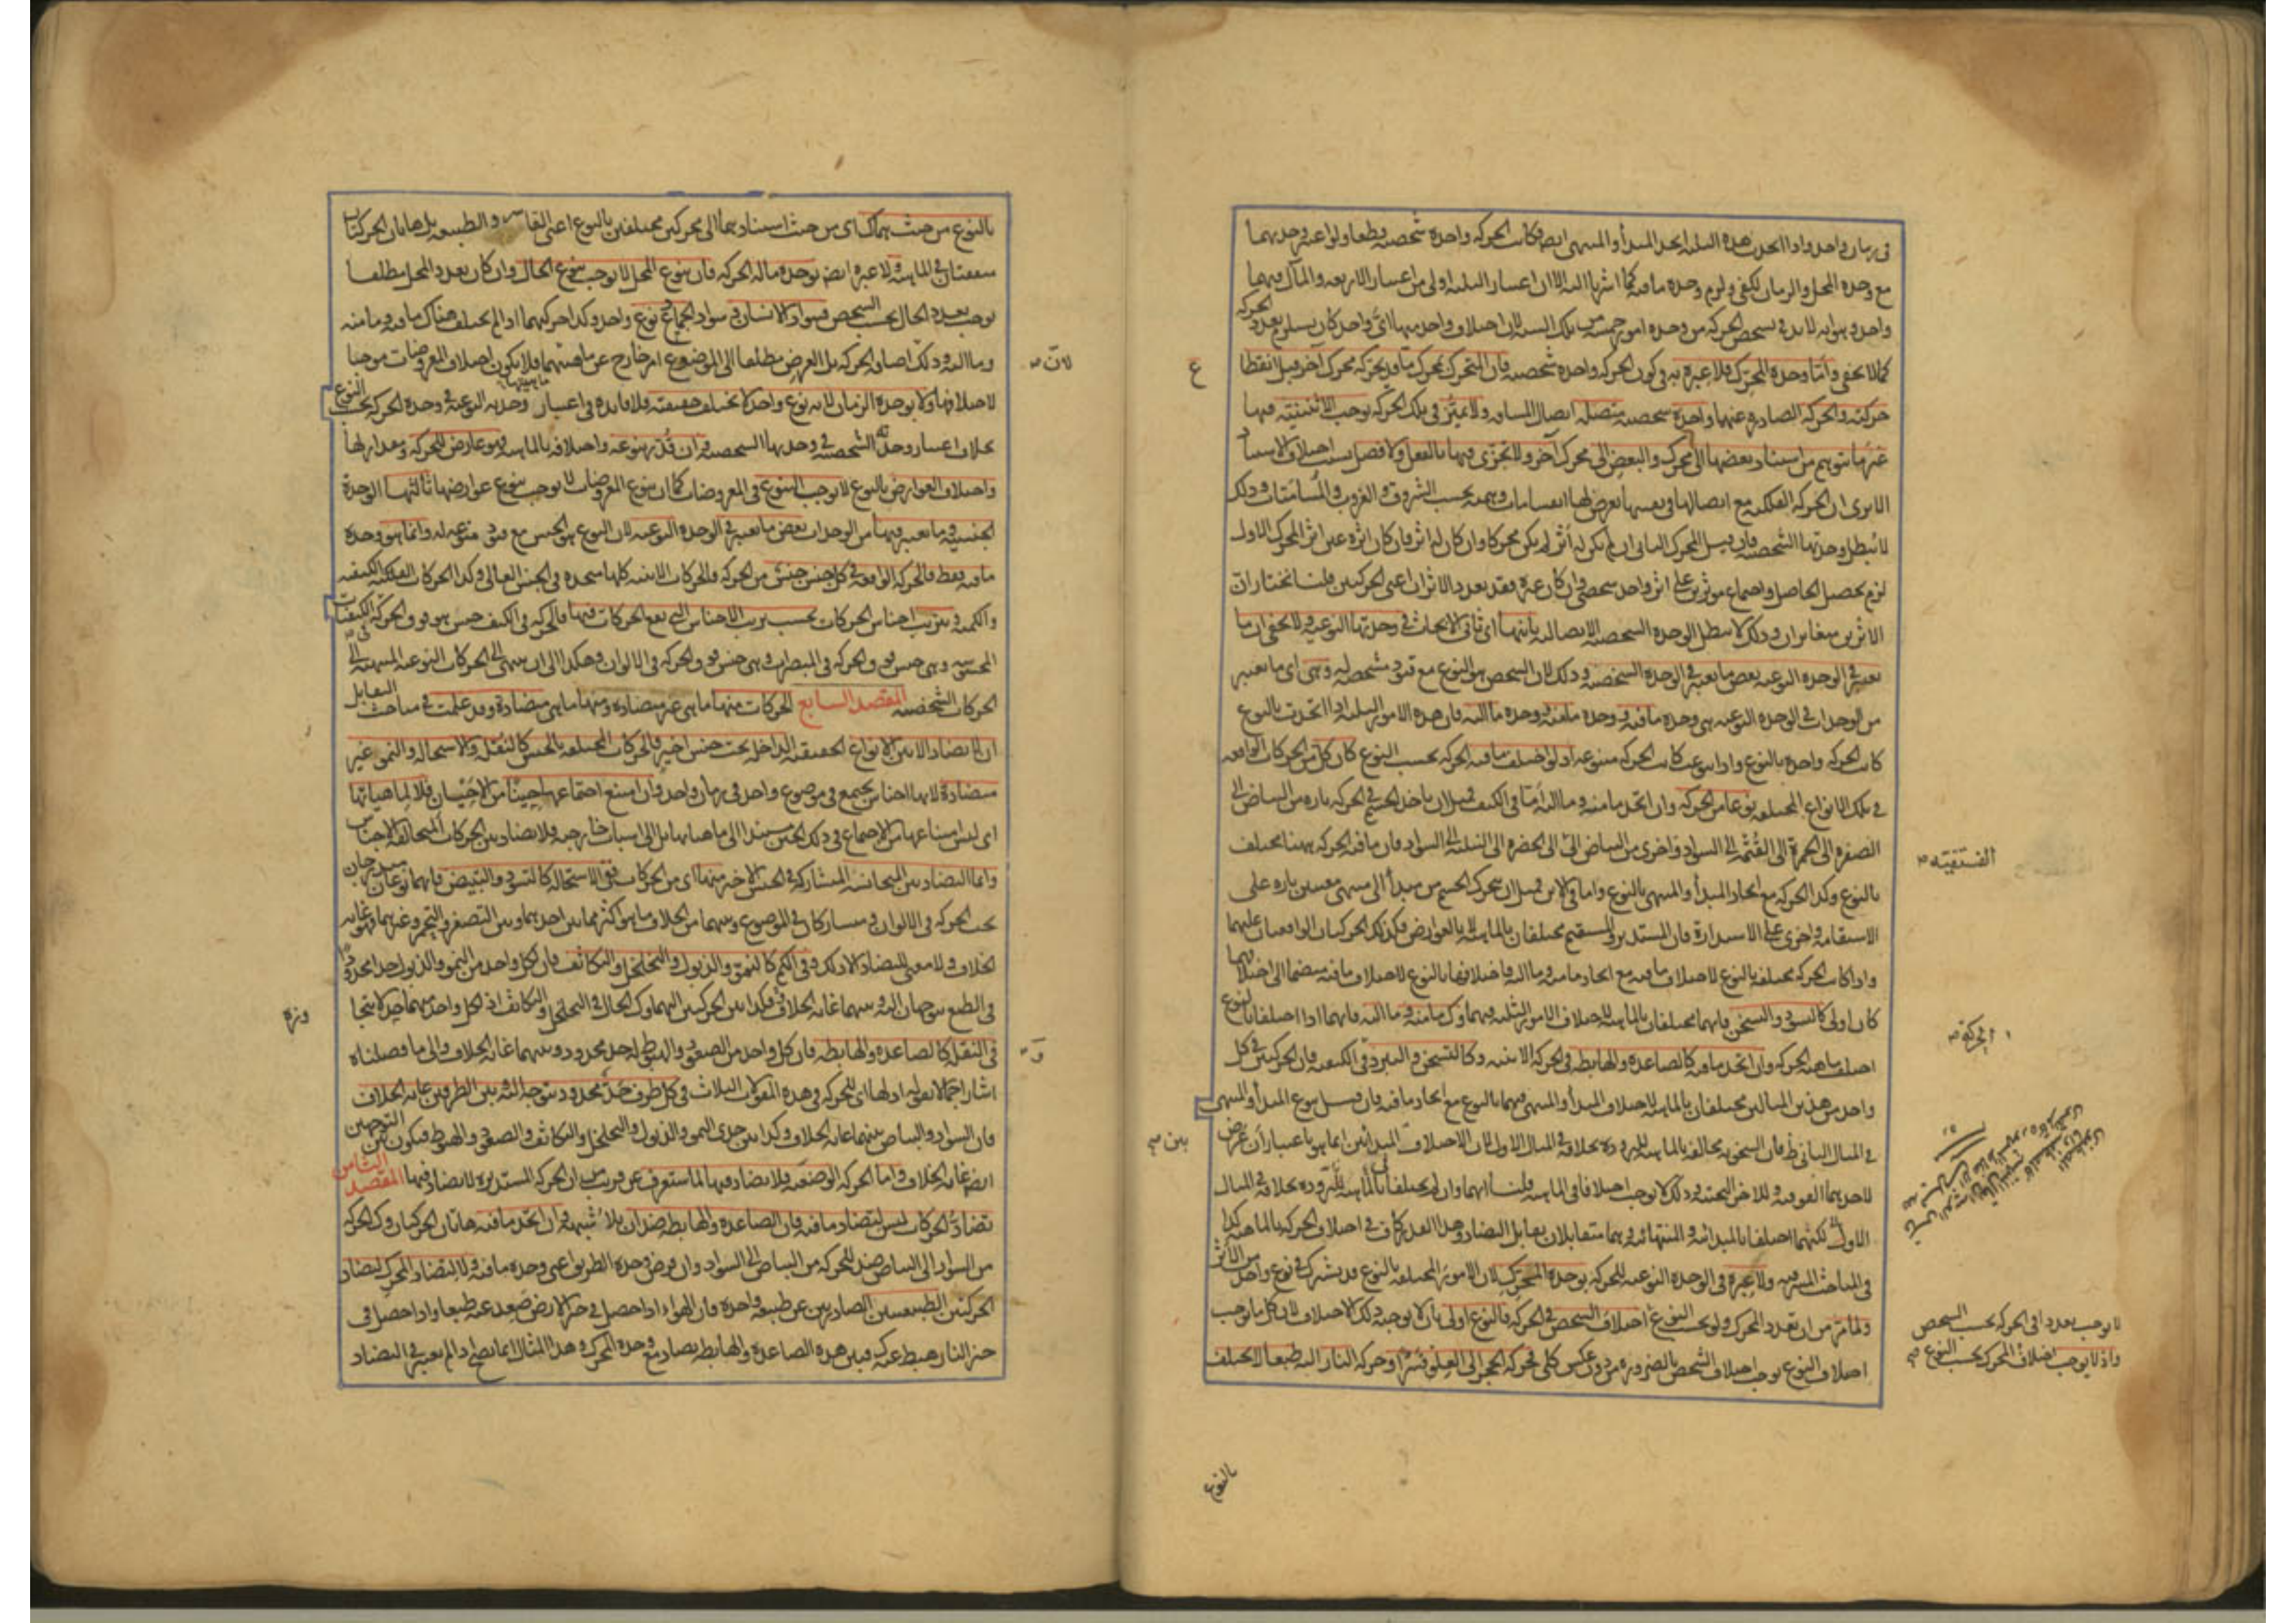 في زمان واحد واذا اتحدت هذه الثلثة اتحد المبدأ والمنتهى ايضا فكانت الحركة واحدة شخصية قطعا ولو اعتبر وحدتهما
مع وحدة المحل والزمان لكفى ولزم وحدة ما فيه كما اشرنا اليه الا ان اعتبار الثلثة اولى من اعتبار الاربعة والمآل فيهما
واحد وهو انه لا بد في تشخص الحركة من وحدة امور خمسة من تلك الستة لان اختلاف واحد منها اى واحد كان يستلزم تعدد الحركة
كما لا يخفى واما وحدة المحرك فلا عبرة به في كون الحركة واحدة شخصية فان المتحرك بمحرك ما قد يحركه محرك آخر قبل انقطاع
حركته والحركة الصادرة عنهما واحدة شخصية متصلة اتصال المسافة ولا تميّز في تلك الحركة يوجب الاثنينية فيها
غير ما يتوهم من استناد بعضها الى محرك والبعض الى محرك آخر ولا تجزى فيها بالفعل ولا فصل بسبب اختلاف الاستناد
الا يرى ان الحركة الفلكية مع اتصالها في نفسها يعرض لها انقسامات وهمية بحسب الشروق والغروب والمسامتات وذلك
لا يبطل وحدتها الشخصية فان قيل المحرك الثاني ان لم يكن له اثر لم يكن محركا وان كان له اثر فان كان اثره عين اثر المحرك الاول
لزم تحصيل الحاصل واجتماع مؤثرين على اثر واحد شخصى وان كان غيره فقد تعدد الاثران اعنى الحركتين قلنا نختار ان
الاثرين متغايران وذلك لا يبطل الوحدة الشخصية الاتصالية ثانيها اى ثانى الابحاث في وحدتها النوعية ولا يخفى ان ما
يعتبر في الوحدة النوعية بعض ما يعتبر في الوحدة الشخصية وذلك لان الشخص هو النوع مع قيود مشخصة له وهى اى ما يعتبر
من الوحدات في الوحدة النوعية هى وحدة ما فيه ووحدة ما منه ووحدة ما اليه فان هذه الامور الثلثة اذا اتحدت بالنوع
كانت الحركة واحدة بالنوع واذا تنوعت كانت الحركة متنوعة اذ لو اختلف ما فيه الحركة بحسب النوع كان كل من الحركات الواقعة
في تلك الانواع المختلفة نوعا من الحركة وان اتحد ما منه وما اليه اما في الكيف فمثل ان ياخذ الجسم في الحركة تارة من البياض الى
الصفرة الى الحمرة الى القتمة الى السواد واخرى من البياض الى الى الخضرة الى النيلية الى السواد فان ما فيه الحركة ههنا مختلف
بالنوع وكذا الحركة مع اتحاد المبدأ والمنتهى بالنوع واما في الاين فمثل ان يتحرك الجسم من مبدأ الى منتهى معينين تارة على
الاستقامة واخرى على الاستدارة فان المستدير والمستقيم مختلفان بالماهية لا بالعوارض فكذلك الحركتان الواقعتان عليهما
واذا كانت الحركة مختلفة بالنوع لاختلاف ما فيه مع اتحاد ما منه وما اليه فاختلافها بالنوع لاختلاف ما فيه منضما الى اختلافهما
كان اولى كالتسود والتسخن فانهما مختلفان بالماهية لاختلاف الامور الثلثة فيهما وكذا ما منه وما اليه فانهما اذا اختلفا بالنوع
اختلف ماهية الحركة وان اتحد ما فيه كالصاعدة والهابطة في الحركة الاينية وكالتسخن والتبرد في الكيفية فان الحركتين في كل
واحد من هذين المثالين مختلفان بالماهية لاختلاف المبدأ والمنتهى فيهما بالنوع مع اتحاد ما فيه فان قيل تنوع المبدأ والمنتهى
في المثال الثاني ظ فان السخونة مخالفة بالماهية للبرودة بخلافه في المثال الاول لان الاختلاف بين المبدأين انما هو باعتبار ان عرض
لاحدهما الفوقية وللآخر التحتية وذلك لا يوجب اختلافا في الماهية قلنا انهما وان لم يختلفا بالماهية بخلافه في المثال
الاول لكنهما اختلفا بالمبدائية والمنتهائية وهما متقابلان تقابل التضاد وهذا القدر كاف في اختلاف الحركة بالماهية كذا
في المباحث المشرقية ولا عبرة في الوحدة النوعية للحركة بوحدة المحرك لان الامور المختلفة بالنوع قد يشترك في نوع واحد من الاثر
ولما مر من ان تعدد المحرك ولو بحسب النوع اختلاف الشخص في الحركة فالنوع اولى بان لا يوجبه ذلك الاختلاف لان كل ما يوجب
اختلاف النوع يوجب اختلاف الشخص بالضرورة من دون عكس كلى فحركة الحجر الى العلو قسرا وحركة النار اليه طبعا لا يختلف
بالنوع
الفستقية
الحركة
بين
لا يوجب تعددا في الحركة بحسب الشخص
واذ لا يوجب اختلاف المحرك بحسب النوع
بالنوع من حيث هما كذلك اى من حيث استنادهما الى محركين مختلفين بالنوع اعنى القاسر والطبيعة بل هاتان الحركتان
متفقتان في الماهية ولا عبرة ايضا بوحدة ما له الحركة فان تنوع المحل لا يوجب تنوع الحال وان كان تعدد المحل مطلقا
يوجب تعدد الحال بحسب الشخص فسواد الانسان وسواد الحمار نوع واحد وكذا حركتهما اذا لم يختلف هناك ما فيه وما منه
وما اليه وذلك لان اضافة الحركة بل العرض مطلقا الى الموضوع امر خارج عن ماهيتهما فلا يكون اختلاف المعروضات موجبا
لاختلافها ولا بوحدة الزمان لانه نوع واحد لا يختلف حقيقته فلا فائدة في اعتبار وحدته النوعية في وحدة الحركة بحسب النوع
بخلاف اعتبار وحدته الشخصية في وحدتها الشخصية وان قدر تنوعه واختلافه بالماهية فهو عارض للحركة ومقدار لها
واختلاف العوارض بالنوع لا يوجب التنوع في المعروضات كما ان تنوع المعروضات لا يوجب تنوع عوارضها ثالثها الوحدة
الجنسية وما يعتبر فيها من الوحدات بعض ما يعتبر في الوحدة النوعية لان النوع هو الجنس مع قيود منوعة له وانما هو وحدة
ما فيه فقط فالحركة الواقعة في كل جنس جنس من الحركة فالحركات الاينية كلها متحدة في الجنس العالى وكذا الحركات الفلكية الكيفية
والكمية وترتيب اجناس الحركات بحسب ترتيب الاجناس التى تقع الحركات فيها فالحركة في الكيف جنس هو فوق الحركة في الكيفيات
المحسوسة وهى جنس فوق الحركة في المبصرات وهى جنس فوق الحركة في الالوان وهكذا الى ان ينتهى الى الحركات النوعية المنتهية الى
الحركات الشخصية المقصد السابع الحركات منها ما هى غير متضادة ومنها ما هى متضادة وقد علمت في مباحث التقابل
ان لا تضاد الا بين الانواع الحقيقية الداخلة تحت جنس اخير فالحركات المختلفة بالجنس كالنقلة والاستحالة والنمو غير
متضادة لانها اجناس يجتمع في موضوع واحد في زمان واحد فان امتنع اجتماعها حينا من الاحيان فلا لماهياتها
اى ليس امتناعها من الاجتماع في ذلك الحين مستندا الى ماهياتها بل الى اسباب خارجية فلا تضاد بين الحركات المتخالفة الاجناس
وانما التضاد بين المتجانسة المشاركة في الجنس الاخير منها اى من الحركات ففي الاستحالة كالتسود والتبيض فانهما نوعان مندرجان
تحت الحركة في الالوان ومتشاركان في الموضوع وبينهما من الخلاف ما هو اكثر مما بين احدهما وبين التصفر والتحمر وغيرهما فهو غاية
الخلاف ولا معنى للتضاد الا ذلك وفي الكم كالنمو والذبول والتخلخل والتكاثف فان لكل واحد من النمو والذبول حدا محدودا
في الطبع يتوجهان اليه وبينهما غاية الخلاف فكذا بين الحركتين اليهما وكذا الحال في التخلخل والتكاثف اذ لكل واحد منهما حد لا يتجاوزه
في النقلة كالصاعدة والهابطة فان كل واحد من الصعود والهبوط له حد محدود وبينهما غاية الخلاف والى ما فصلناه
اشار اجمالا بقوله اذ لها اى للحركة في هذه المقولات الثلاث في كل طرف حد محدود يتوجه اليه بين الطرفين غاية الخلاف
فان السواد والبياض بينهما غاية الخلاف وكذا بين حدى النمو والذبول والتخلخل والتكاثف والصعود والهبوط فيكون بين التوجهين
ايضا غاية الخلاف واما الحركة الوضعية فلا تضاد فيها لما ستعرف عن قريب من ان الحركة المستديرة لا تضاد فيها المقصد الثامن
تضاد الحركات ليس لتضاد ما فيه فان الصاعدة والهابطة ضدان بلا شبهة وان اتحد ما فيه هاتان الحركتان وكذا الحركة
من السواد الى البياض ضد للحركة من البياض الى السواد وان فرض وحدة الطريق اعنى وحدة ما فيه ولا لتضاد المحرك لتضاد
الحركتين الطبيعيتين الصادرتين عن طبيعة واحدة فان الهواء اذا حصل في حيز الارض صعد عنه طبعا واذا حصل في
حيز النار هبط عنه فبين هذه الصاعدة والهابطة تضاد مع وحدة المحرك وهذا المثال انما يصح اذا لم يعتبر في التضاد
لان